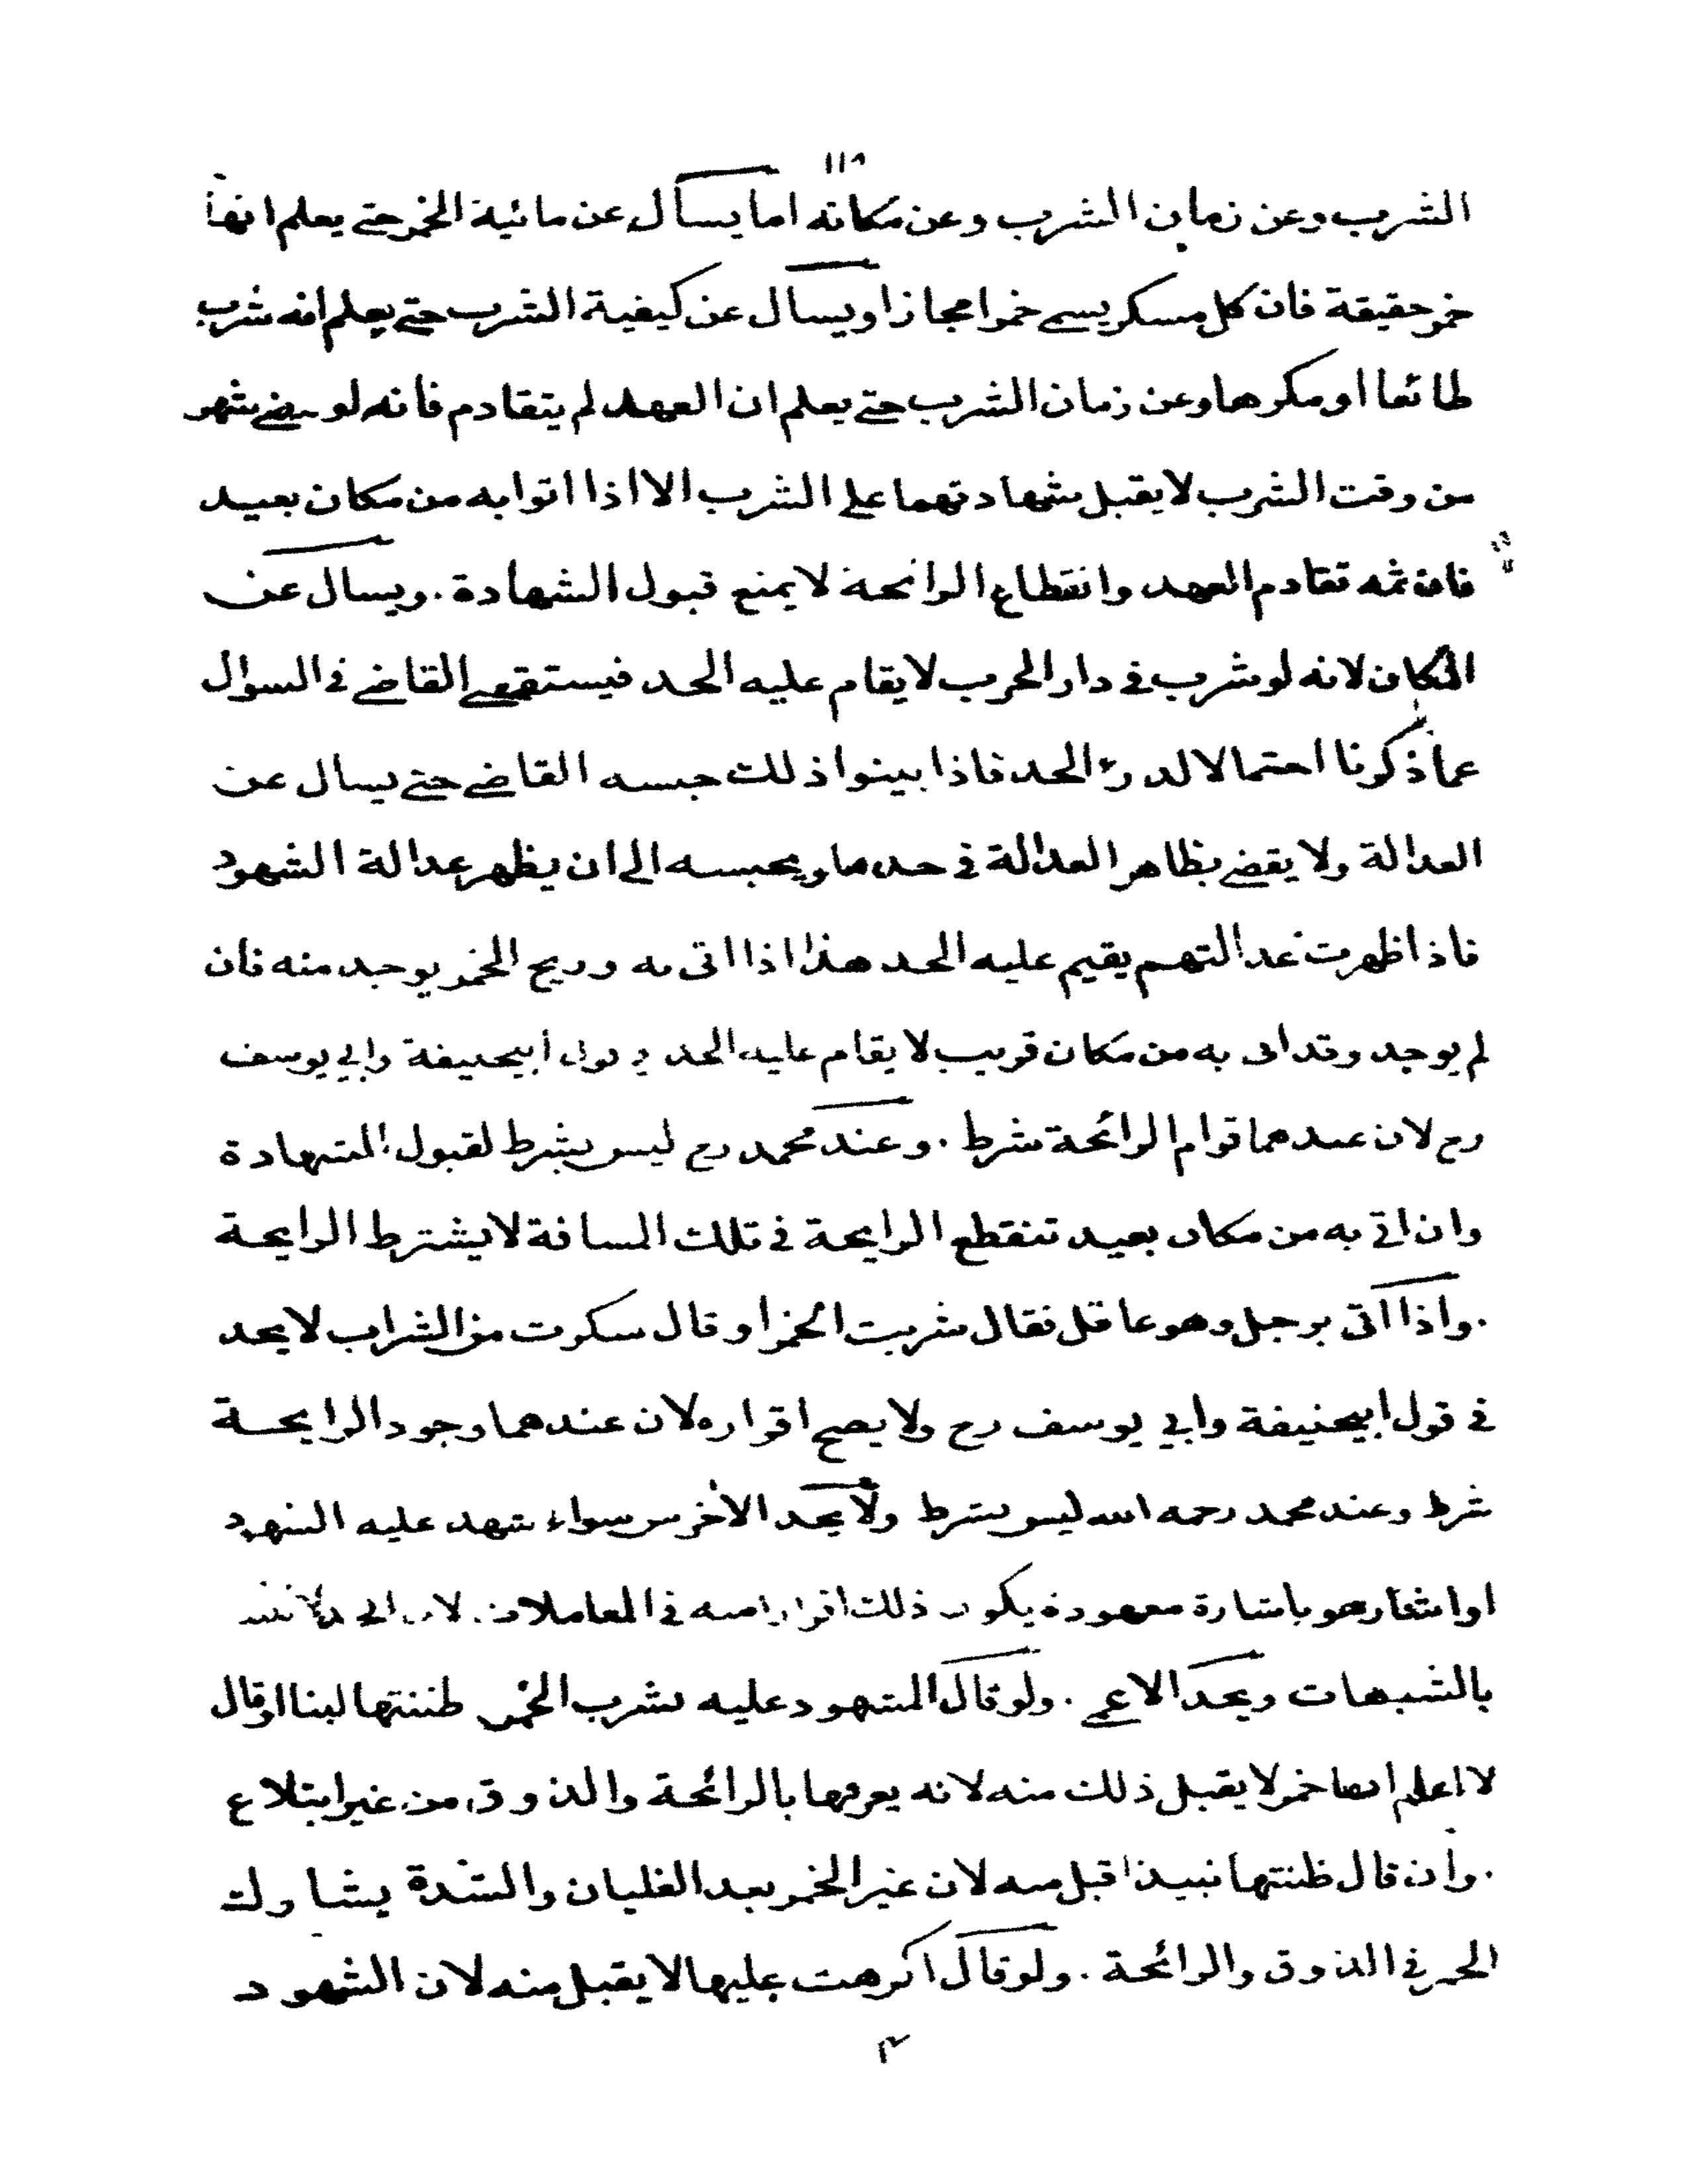 ١١٨
الشرب وعن زمان الشرب وعن مكانه اما يسأل عن مائية الخمر حتى يعلم انها
خمر حقيقة فان كل مسكر يسمى خمرا مجازا ويسأل عن كيفية الشرب حتى يعلم انه شرب
طائعا او مكرها وعن زمان الشرب حتى يعلم ان العهد لم يتقادم فانه لو مضى شهر
من وقت الشرب لا يقبل شهادتهما على الشرب الا اذا اتوا به من مكان بعيد
فان ثمه تقادم العهد وانقطاع الرائحة لا يمنع قبول الشهادة . ويسال عن
المكان لانه لو شرب في دار الحرب لا يقام عليه الحد فيستقصى القاضى فى السوال
عما ذكرنا احتمالا لدرء الحد فاذا بينوا ذلك حبسه القاضى حتى يسال عن
العدالة ولا يقضى بظاهر العدالة فى حد ما ويحبسه الى ان يظهر عدالة الشهود
فاذا ظهرت عدالتهم يقيم عليه الحد هذا اذا اتى به وريح الخمر يوجد منه فان
لم يوجد وقد اتى به من مكان قريب لا يقام عليه الحد فى قول أبيحنيفة وابي يوسف
رح لان عندهما قوام الرائحة شرط . وعند محمد رح ليس بشرط لقبول الشهادة
وان اتى به من مكان بعيد تنقطع الرايحة فى تلك المسافة لا يشترط الرايحة
. واذا اتى برجل وهو عاقل فقال شربت الخمر او قال سكرت من الشراب لا يحد
فى قول ابيحنيفة وابي يوسف رح ولا يصح اقراره لان عندهما وجود الرايحة
شرط وعند محمد رحمه الله ليس بشرط ولا يحد الاخرس سواء شهد عليه الشهود
او اشار هو باشارة معهودة يكون ذلك اقرارا منه فى المعاملات لان الحد لا
بالشبهات ويحد الاعمى . ولو قال المشهود عليه بشرب الخمر ظننتها لبنا او قال
لا اعلم انها خمر لا يقبل ذلك منه لانه يعرفها بالرائحة والذوق من غير ابتلاع
. وان قال ظننتها نبيذا قبل منه لان غير الخمر بعد الغليان والشدة يشارك
الخمر فى الذوق والرائحة . ولو قال اكرهت عليها لا يقبل منه لان الشهود